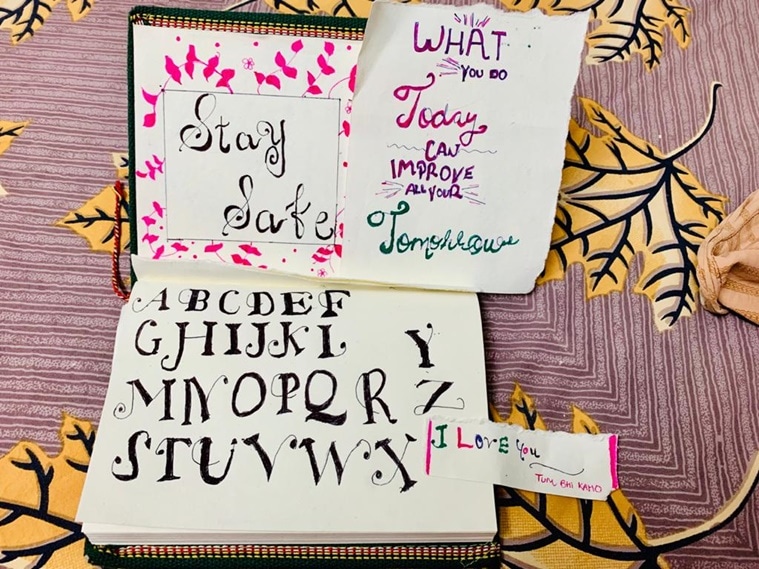 Stay
Safe
WHAT
YOU DO
Today
CAN
IMPROVE
ALL YOUR
Tomorrow
A B C D E F
G H I J K L
Y
M N O P Q R
Z
S T U V W X
I LOVE You
TUM BHI KAHO